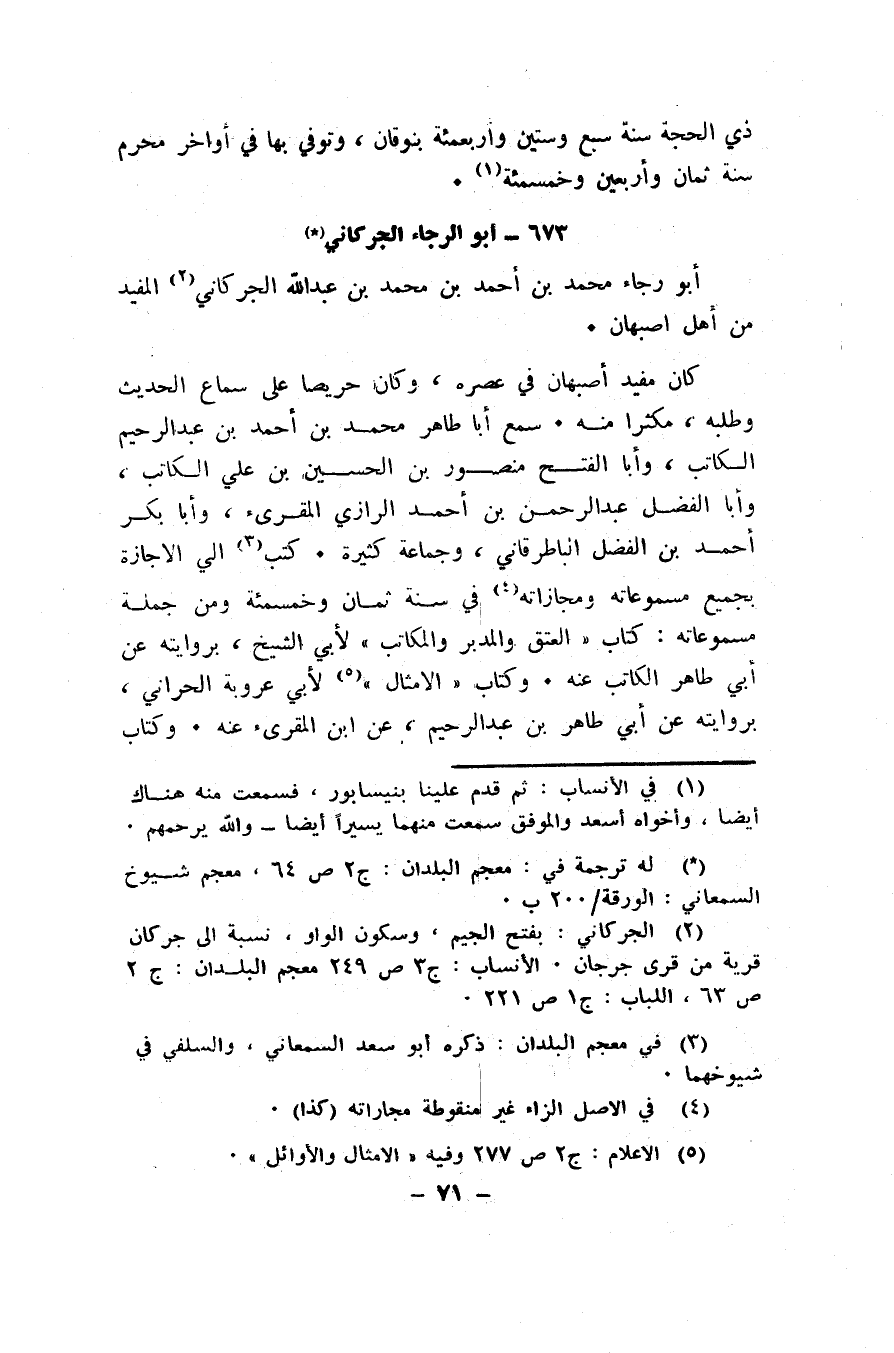 ذي الحجة سنة سبع وستين وأربعمئة بنوقان ، وتوفي بها في أواخر محرم
سنة ثمان وأربعين وخمسمئة(١) ٠
٦٧٣ – ابو الرجاء الجركاني(*)
أبو رجاء محمد بن أحمد بن محمد بن عبدالله الجركاني(٢) المفيد
من أهل اصبهان ٠
كان مفيد أصبهان في عصره ، وكان حريصا على سماع الحديث
وطلبه ، مكثرا منه ٠ سمع أبا طاهر محمد بن أحمد بن عبدالرحيم
الكاتب ، وأبا الفتح منصور بن الحسين بن علي الكاتب ،
وأبا الفضل عبدالرحمن بن أحمد الرازي المقرىء ، وأبا بكر
أحمد بن الفضل الباطرقاني ، وجماعة كثيرة ٠ كتب(٣) الي الاجازة
بجميع مسموعاته ومجازاته(٤) في سنة ثمان وخمسمئة ومن جملة
مسموعاته : كتاب « العتق والمدبر والمكاتب » لأبي الشيخ ، بروايته عن
أبي طاهر الكاتب عنه ٠ وكتاب « الامثال »(٥) لأبي عروبة الحراني ،
بروايته عن أبي طاهر بن عبدالرحيم ، عن ابن المقرىء عنه ٠ وكتاب
(١) في الأنساب : ثم قدم علينا بنيسابور ، فسمعت منه هناك
أيضا ، وأخواه أسعد والموفق سمعت منهما يسيراً أيضا – والله يرحمهم ٠
(*) له ترجمة في : معجم البلدان : ج٢ ص ٦٤ ، معجم شيوخ
السمعاني : الورقة/٢٠٠ ب ٠
(٢) الجركاني : بفتح الجيم ، وسكون الواو ، نسبة الى جركان
قرية من قرى جرجان ٠ الأنساب : ج٣ ص ٢٤٩ معجم البلدان : ج ٢
ص ٦٣ ، اللباب : ج١ ص ٢٢١ ٠
(٣) في معجم البلدان : ذكره أبو سعد السمعاني ، والسلفي في
شيوخهما ٠
(٤) في الاصل الزاء غير منقوطة مجاراته (كذا) ٠
(٥) الاعلام : ج٢ ص ٢٧٧ وفيه « الامثال والأوائل » ٠
– ٧١ –